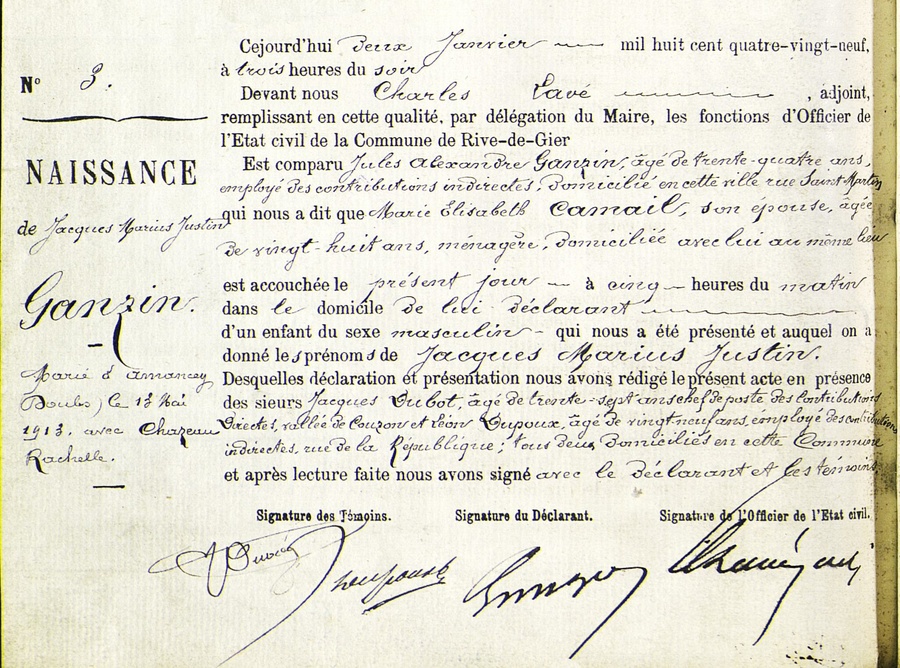 N° 3.
NAISSANCE
de Jacques Marius Justin
Ganzin.
Marié à Amancey
Doubs) le 13 Mai
1913, avec Chapeau
Rachelle.
Cejourd'hui deux Janvier mil huit cent quatre-vingt-neuf,
à trois heures du soir
Devant nous Charles Favé , adjoint,
remplissant en cette qualité, par délégation du Maire, les fonctions d'Officier de
l'Etat civil de la Commune de Rive-de-Gier
Est comparu Jules Alexandre Ganzin, âgé de trente-quatre ans,
employé des contributions indirectes, domicilié en cette ville rue Saint-Martin
qui nous a dit que Marie Elisabeth Camail, son épouse, âgée
de vingt-huit ans, ménagère, domiciliée avec lui au même lieu
est accouchée le présent jour à cinq heures du matin
dans le domicile de lui déclarant
d'un enfant du sexe masculin - qui nous a été présenté et auquel on a
donné les prénoms de Jacques Marius Justin.
Desquelles déclaration et présentation nous avons rédigé le présent acte en présence
des sieurs Jacques Dubot, âgé de trente-sept ans chef de poste des contributions
directes, vallée de Couzon et Léon Dupoux, âgé de vingt-neuf ans, employé des contributions
indirectes, rue de la République ; tous deux domiciliés en cette Commune
et après lecture faite nous avons signé avec le déclarant et les témoins
Signature des Témoins. Signature du Déclarant. Signature de l'Officier de l'Etat civil.